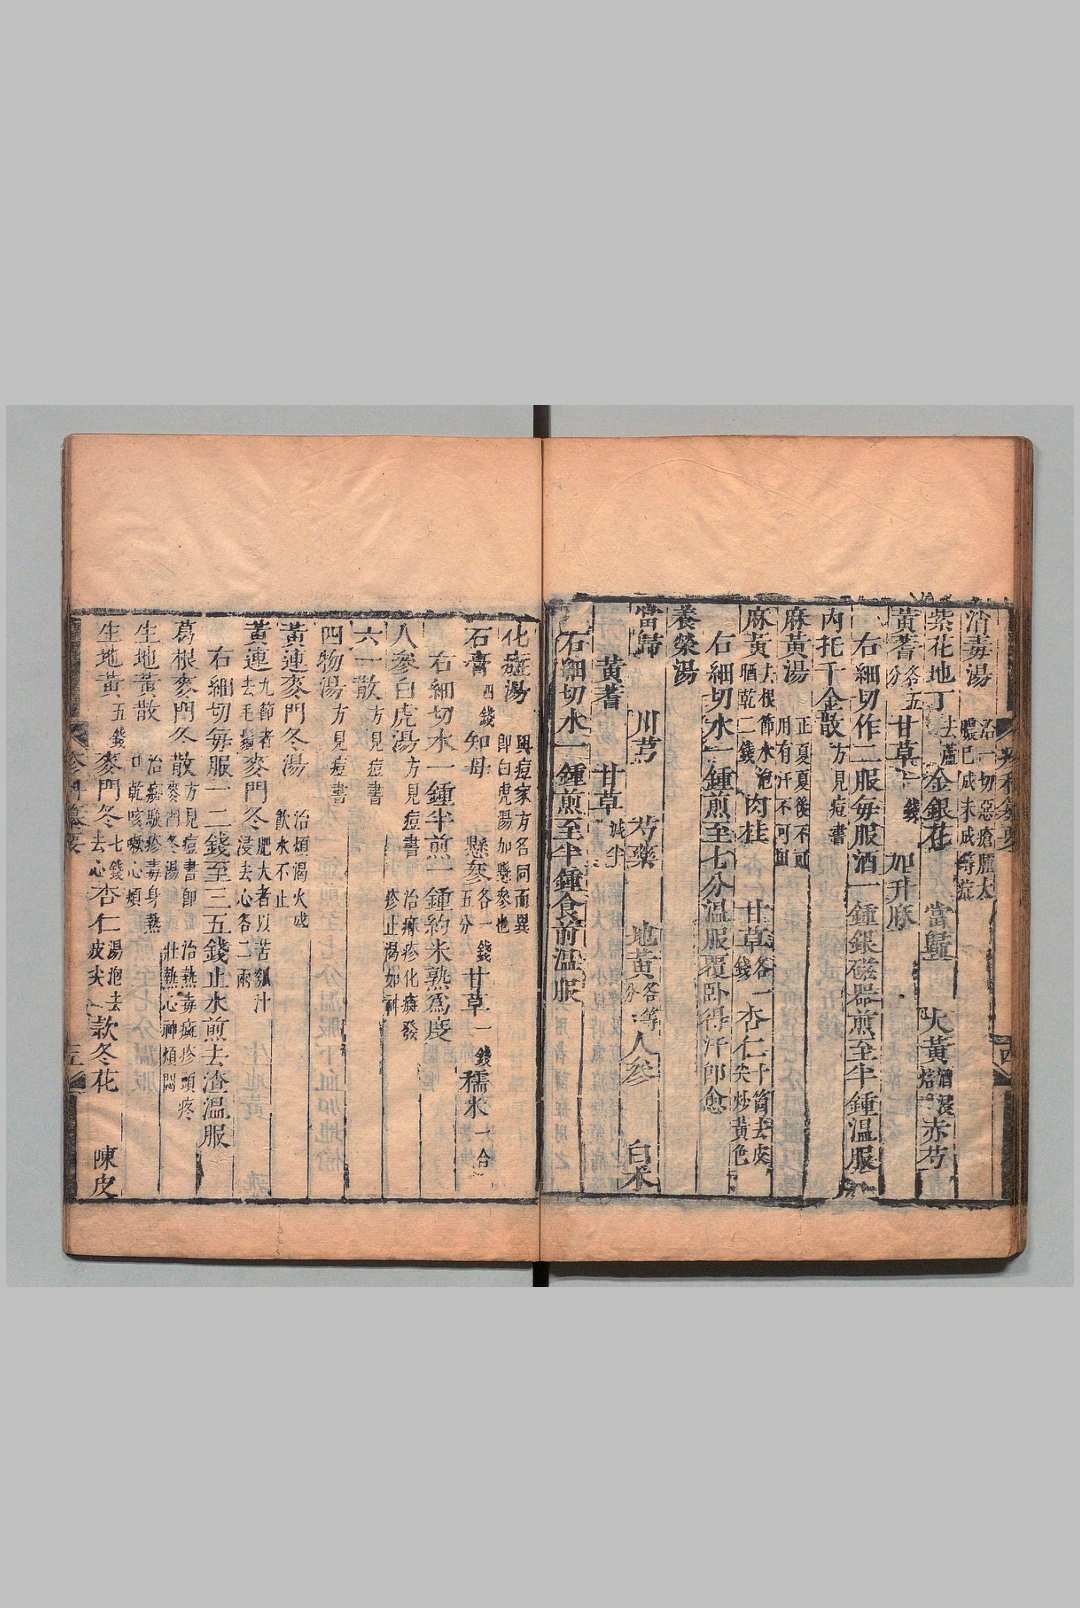 消毒湯 治一切惡瘡腫大膿已成未成等症
紫花地丁 去蘆 金銀花 當歸 大黃 酒浸 赤芍
黃耆 各五分 甘草 一錢 如升麻
右細切作二服每服酒一鍾銀磁器煎至半鍾溫服
內托千金散 方見痘書
麻黃湯 正夏夏後不可用有汗不可
麻黃 去根節水泡酒乾二錢 肉桂 甘草 各一錢 杏仁 十箇去皮尖炒黃色
右細切水一鍾煎至七分溫服覆臥得汗即愈
養榮湯
當歸 川芎 芍藥 地黃 各等分 人參 白朮
黃耆 甘草 減半
右細切水一鍾煎至半鍾食前溫服
四
化斑湯 與痘家有名同而異即白虎湯加懸參也
石膏 四錢 知母 懸參 各一錢五分 甘草 一錢 糯米 一合
右細切水一鍾半煎一鍾約米熟爲度
人參白虎湯 方見痘書 治痳疹化癍發疹止渴如神
六一散 方見痘書
四物湯 方見痘書
黃連麥門冬湯 治煩渴火盛飲水不止
黃連 九節者去毛鬚 麥門冬 肥大者以苦瓠汁浸去心各二兩
右細切每服一二錢至三五錢止水煎去渣溫服
葛根麥門冬散 方見痘書即葵門冬湯 治熱毒癍疹頭疼壯熱心神煩悶
生地黃散 治癍駁疹毒身熱口乾咳嗽心煩
生地黃 五錢 麥門冬 七錢去心 杏仁 湯泡去皮尖 款冬花 陳皮
五